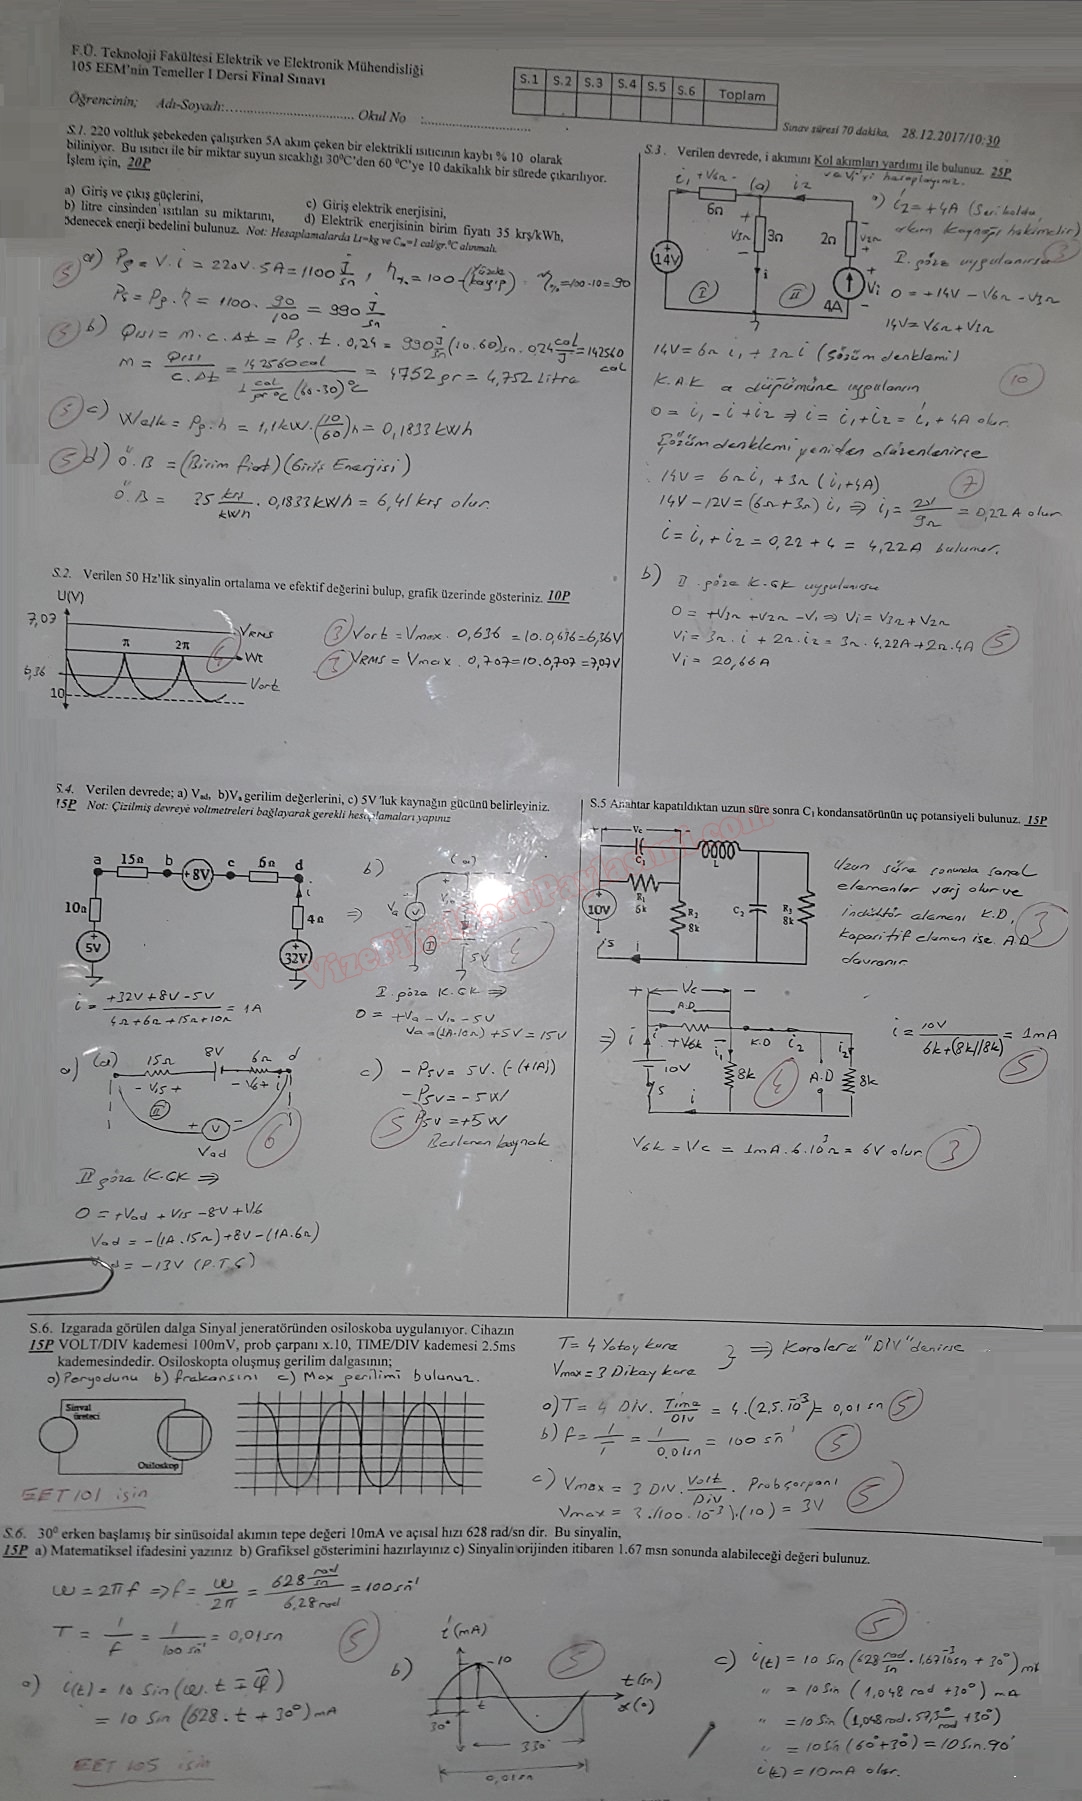 F.Ü. Teknoloji Fakültesi Elektrik ve Elektronik Mühendisliği
105 EEM'nin Temeller I Dersi Final Sınavı
Öğrencinin; Adı-Soyadı:................................ Okul No :...........................
S.1 S.2 S.3 S.4 S.5 S.6 Toplam
Sınav süresi 70 dakika, 28.12.2017/10:30
S.1. 220 voltluk şebekeden çalışırken 5A akım çeken bir elektrikli ısıtıcının kaybı % 10 olarak
biliniyor. Bu ısıtıcı ile bir miktar suyun sıcaklığı 30°C'den 60 °C'ye 10 dakikalık bir sürede çıkarılıyor.
İşlem için, 20P
a) Giriş ve çıkış güçlerini,
b) litre cinsinden ısıtılan su miktarını,
c) Giriş elektrik enerjisini,
d) Elektrik enerjisinin birim fiyatı 35 krş/kWh,
ödenecek enerji bedelini bulunuz. Not: Hesaplamalarda Lt=kg ve Csu=1 cal/gr.°C alınmalı.
5 a) Pg = V.i = 220V.5A = 1100 J/sn , η% = 100-(Yüzde kayıp) η%=100-10=90
Ps = Pg.η = 1100. 90/100 = 990 J/sn
5 b) Qısı = m.c.Δt = Ps.t.0,24 = 990 J/sn (10.60)sn.0,24 cal/J = 142560 cal
m = Qısı/c.Δt = 142560 cal / 1 cal/gr°C (60-30)°C = 4752 gr = 4,752 Litre
5 c) Welk = Pg.h = 1,1kW.(10/60)h = 0,1833 kWh
5 d) Ö.B = (Birim fiat)(Giriş Enerjisi)
Ö.B = 35 krş/kWh . 0,1833 kWh = 6,41 krş olur.
S.2. Verilen 50 Hz'lik sinyalin ortalama ve efektif değerini bulup, grafik üzerinde gösteriniz. 10P
U(V)
7,07
VRMS
π 2π
Wt
6,36
Vort
10
3 Vort = Vmax . 0,636 = 10.0,636 = 6,36V
VRMS = Vmax . 0,707 = 10.0,707 = 7,07V
S.3. Verilen devrede, i akımını Kol akımları yardımı ile bulunuz. 25P
ve Vi'yi hesaplayınız.
i1 +V6Ω- (a) i2
6Ω
14V
V3Ω 3Ω
2Ω V2Ω
i
I II 4A Vi
a) i2 = +4A (Seri kolda,
akım kaynağı hakimdir) 3
I. göze uygulanırsa
0 = +14V - V6Ω - V3Ω
14V = V6Ω + V3Ω
14V = 6Ω i1 + 3Ω i (Çözüm denklemi)
K.A.K a düğümüne uygulanırsa 10
0 = i1 - i + i2 ⇒ i = i1 + i2 = i1 + 4A olur.
Çözüm denklemi yeniden düzenlenirse
14V = 6Ω i1 + 3Ω (i1+4A) 7
14V - 12V = (6Ω+3Ω) i1 ⇒ i1 = 2V/9Ω = 0,22 A olur
i = i1 + i2 = 0,22 + 4 = 4,22A bulunur.
b) II. göze K.GK uygulanırsa
0 = +V3Ω + V2Ω - Vi ⇒ Vi = V3Ω + V2Ω
Vi = 3Ω.i + 2Ω.i2 = 3Ω.4,22A + 2Ω.4A 5
Vi = 20,66A
S.4. Verilen devrede; a) Vad, b)Va gerilim değerlerini, c) 5V'luk kaynağın gücünü belirleyiniz.
15P Not: Çizilmiş devreye voltmetreleri bağlayarak gerekli hesaplamaları yapınız
a 15Ω b +8V c 6Ω d
10Ω
i
4Ω
5V
32V
i = +32V+8V-5V / 4Ω+6Ω+15Ω+10Ω = 1A
b) ⇒ Va I 5V 4
I. göze K.GK ⇒
0 = +Va - V10 - 5V
Va = (1A.10Ω) + 5V = 15V
a) (a) 15Ω 8V 6Ω d
- V15 + - V6+ i
II
+ V -
Vad
6
II göze K.GK ⇒
0 = +Vad + V15 - 8V + V6
Vad = -(1A.15Ω) + 8V - (1A.6Ω)
Vad = -13V (P.T.S)
c) - P5V = 5V.(-(+1A))
- P5V = -5W
5 P5V = +5W
Beslenen kaynak
VizeFinalSoruPaylasimi.com
S.5 Anahtar kapatıldıktan uzun süre sonra C1 kondansatörünün uç potansiyeli bulunuz. 15P
+ Vc -
C1 L
R1 6k
10V
R2 8k
C2
R3 8k
S i
Uzun süre sonunda sanal
elemanlar şarj olur ve
indüktör elemanı K.D,
Kapasitif eleman ise A.D
davranır. 3
+ Vc -
A.D
⇒ i +V6k- K.D i2
i1 i2
10V 8k A.D 8k
S i 4
i = 10V / 6k+(8k//8k) = 1mA
5
V6k = Vc = 1mA.6.10³Ω = 6V olur. 3
S.6. Izgarada görülen dalga Sinyal jeneratöründen osiloskoba uygulanıyor. Cihazın
15P VOLT/DIV kademesi 100mV, prob çarpanı x.10, TIME/DIV kademesi 2.5ms
kademesindedir. Osiloskopta oluşmuş gerilim dalgasının;
a) Peryodunu b) frekansını c) Max gerilimi bulunuz.
Sinyal üreteci
Osiloskop
EET101 için
T = 4 Yatay kare
Vmax = 3 Dikey kare
} ⇒ Karelere "DIV" denirse
a) T = 4 DIV. Time/DIV = 4.(2,5.10⁻³) = 0,01 sn 5
b) f = 1/T = 1/0,01sn = 100 sn⁻¹ 5
c) Vmax = 3 DIV. Volt/DIV . Prob çarpanı
Vmax = 3.(100.10⁻³).(10) = 3V 5
S.6. 30° erken başlamış bir sinüsoidal akımın tepe değeri 10mA ve açısal hızı 628 rad/sn dir. Bu sinyalin,
15P a) Matematiksel ifadesini yazınız b) Grafiksel gösterimini hazırlayınız c) Sinyalin orijinden itibaren 1.67 msn sonunda alabileceği değeri bulunuz.
w = 2πf ⇒ f = w/2π = 628 rad/sn / 6,28 rad = 100 sn⁻¹
T = 1/f = 1/100 sn⁻¹ = 0,01 sn 5
a) i(t) = 10 Sin(w.t ∓ φ)
= 10 Sin (628.t + 30°) mA
EET 105 için
b) i(mA)
10
5
t(sn)
α(°)
t
30°
330°
0,01sn
5
c) i(t) = 10 Sin (628 rad/sn . 1,67.10⁻³sn + 30°) mA
" = 10 Sin (1,048 rad + 30°) mA
" = 10 Sin (1,048 rad . 57,3°/rad + 30°)
" = 10 Sin (60° + 30°) = 10 Sin.90°
i(t) = 10mA olur.